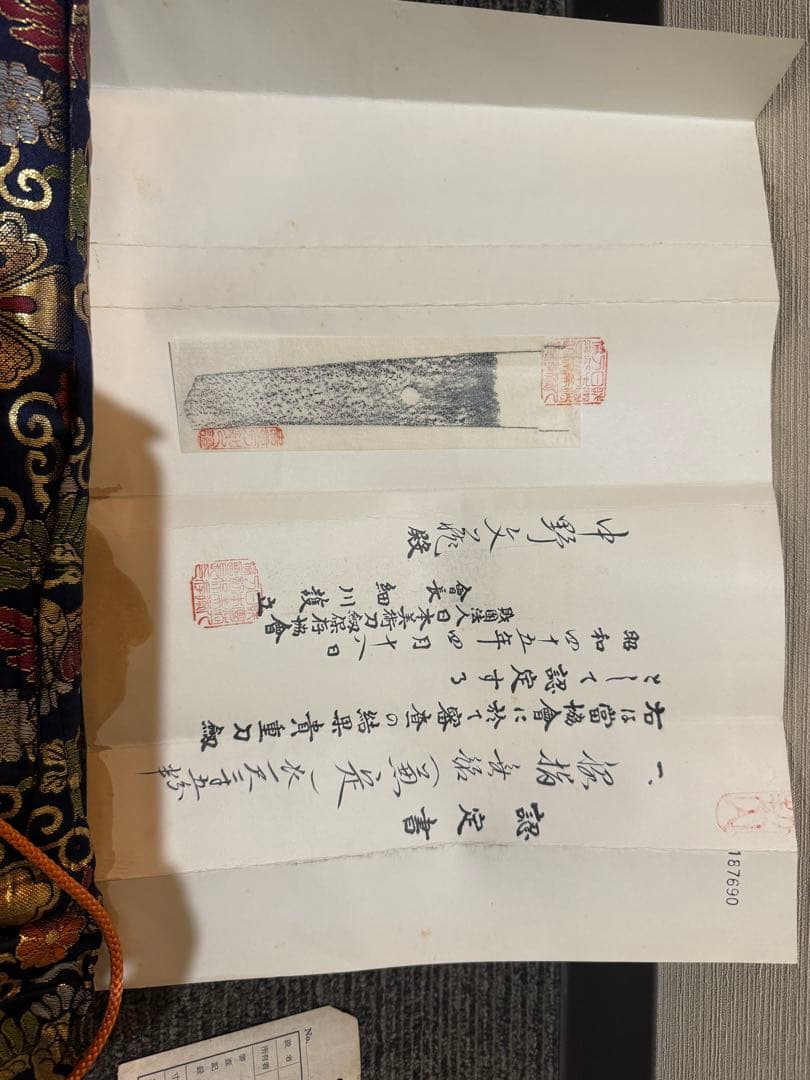 認定書
一、脇指 無銘(兼定) 長一尺 寸五分半
右は當協會に於て審査の結果貴重刀剱
として認定する
昭和四十五年四月十八日
財團法人日本美術刀剱保存協會
會長 細川護立
中野文 殿
187690
No.
所有者
審査記録
寸